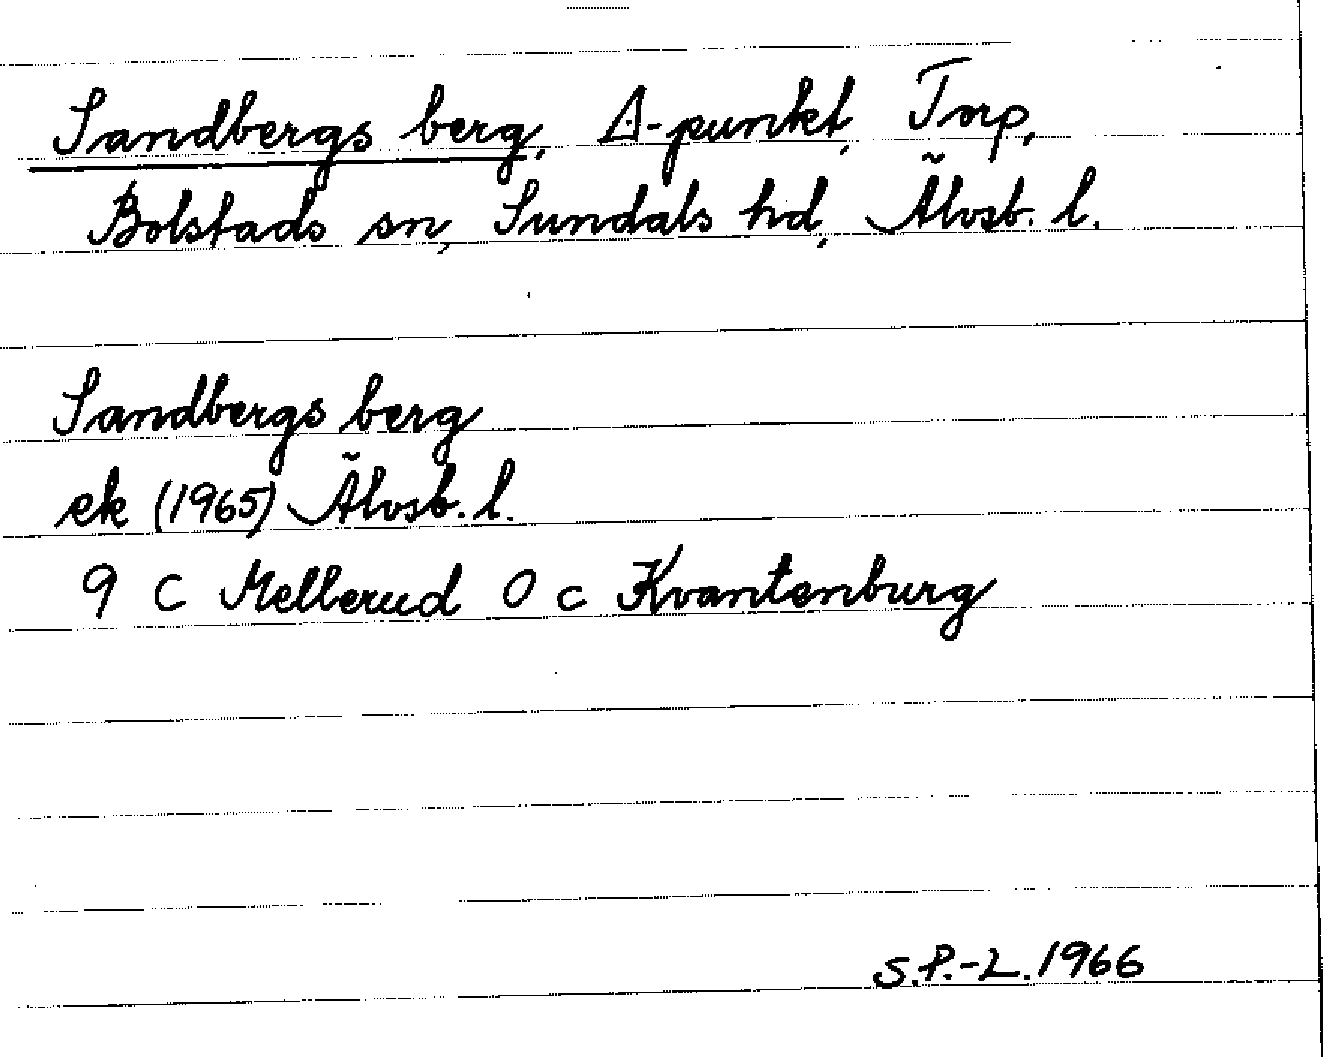 Sandbergs berg, Δ-punkt, Torp,
Bolstads sn, Sundals hd, Älvsb. l.
Sandbergs berg
ek (1965) Älvsb. l.
9 C Mellerud 0 c Kvantenburg
S.P.-L. 1966